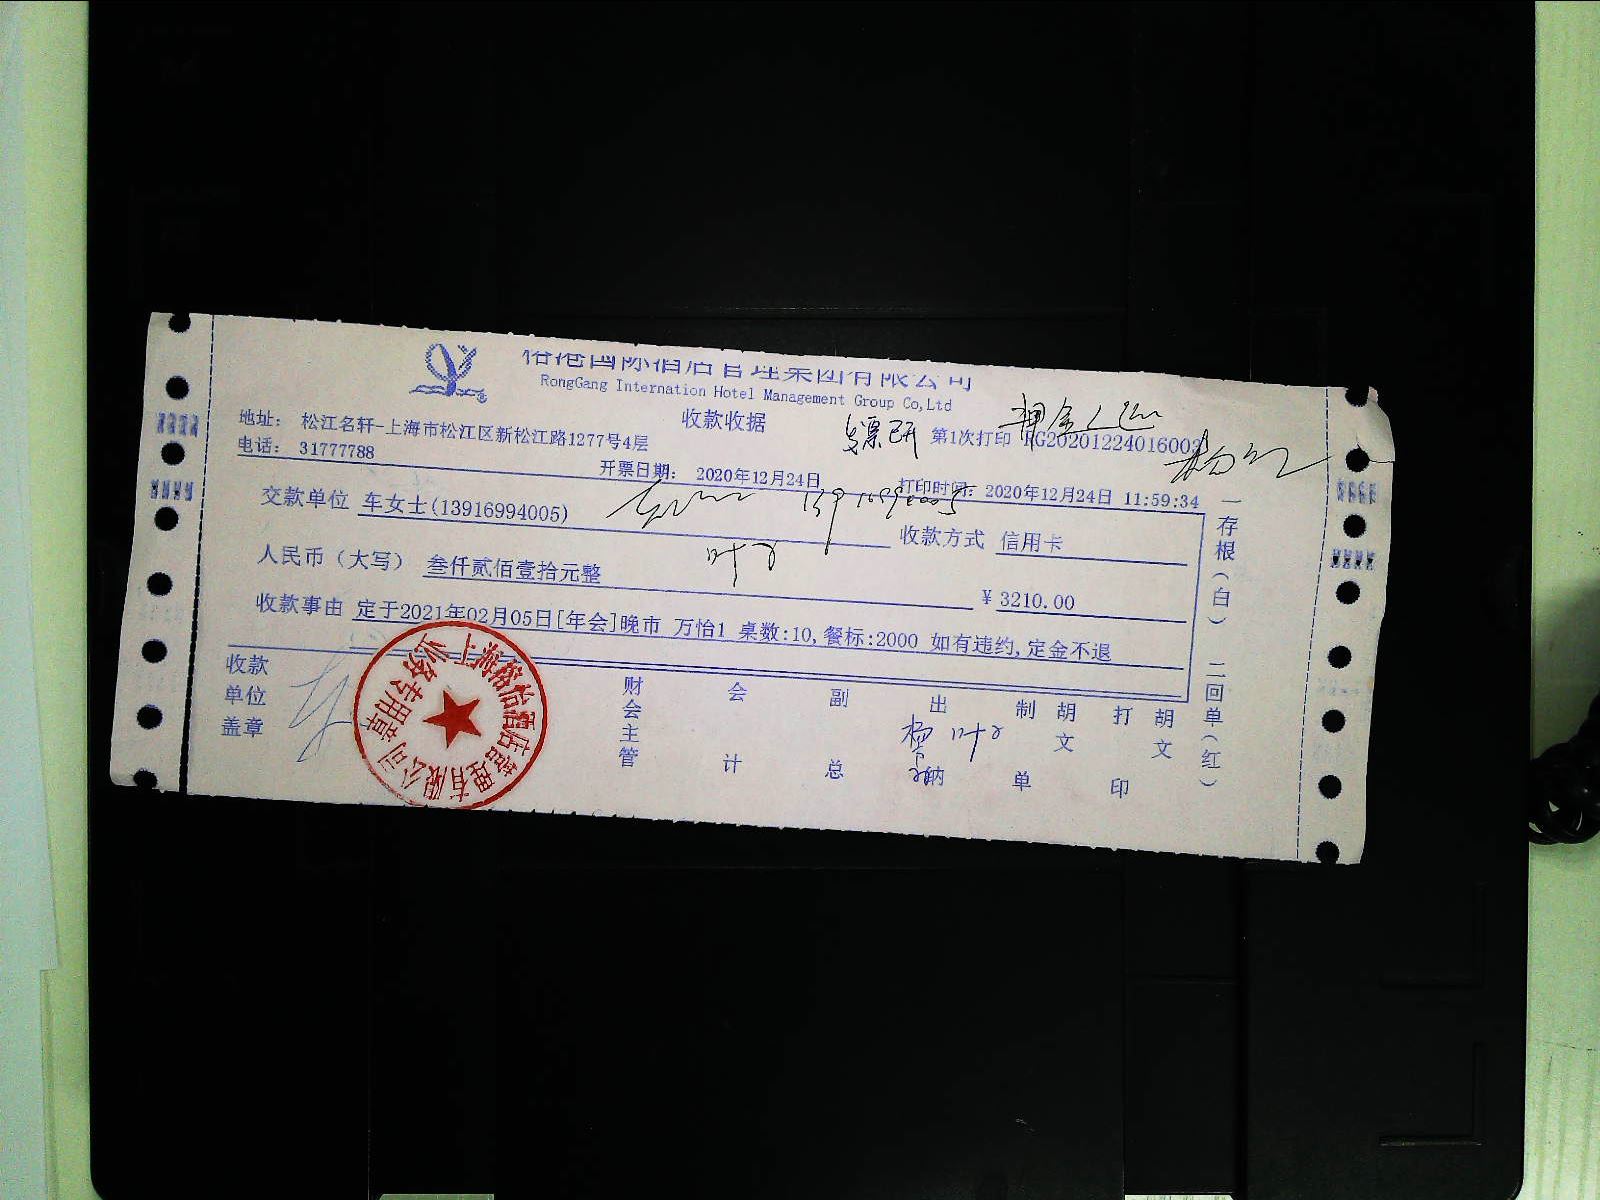 裕港国际酒店管理集团有限公司
RongGang Internation Hotel Management Group Co,Ltd
收款收据
地址： 松江名轩-上海市松江区新松江路1277号4层
第1次打印 RG20201224016003
电话： 31777788
开票日期： 2020年12月24日
打印时间：2020年12月24日 11:59:34
交款单位 车女士(13916994005)
收款方式 信用卡
人民币（大写） 叁仟贰佰壹拾元整
¥ 3210.00
收款事由 定于2021年02月05日[年会]晚市 万怡1 桌数:10,餐标:2000 如有违约,定金不退
收款单位盖章
财会主管
会计
副总
出纳
制单
胡文
打印
胡文
一存根（白） 二回单（红）
业务专用章